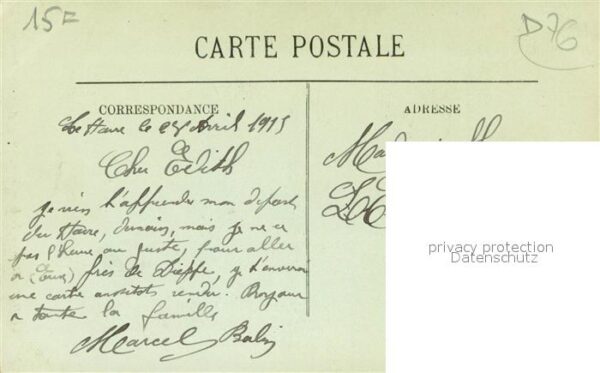 15F
D76
CARTE POSTALE
CORRESPONDANCE
ADRESSE
Le Havre le 25 Avril 1915
Cher Edith
je viens t'apprendre mon départ
du Havre, demain, mais je ne
pas l'heure au juste, pour aller
a (Eu) près de Dieppe, je t'enverrai
une carte aussitôt rendu. Bonjour
a toute la famille
Marcel
privacy protection
Datenschutz